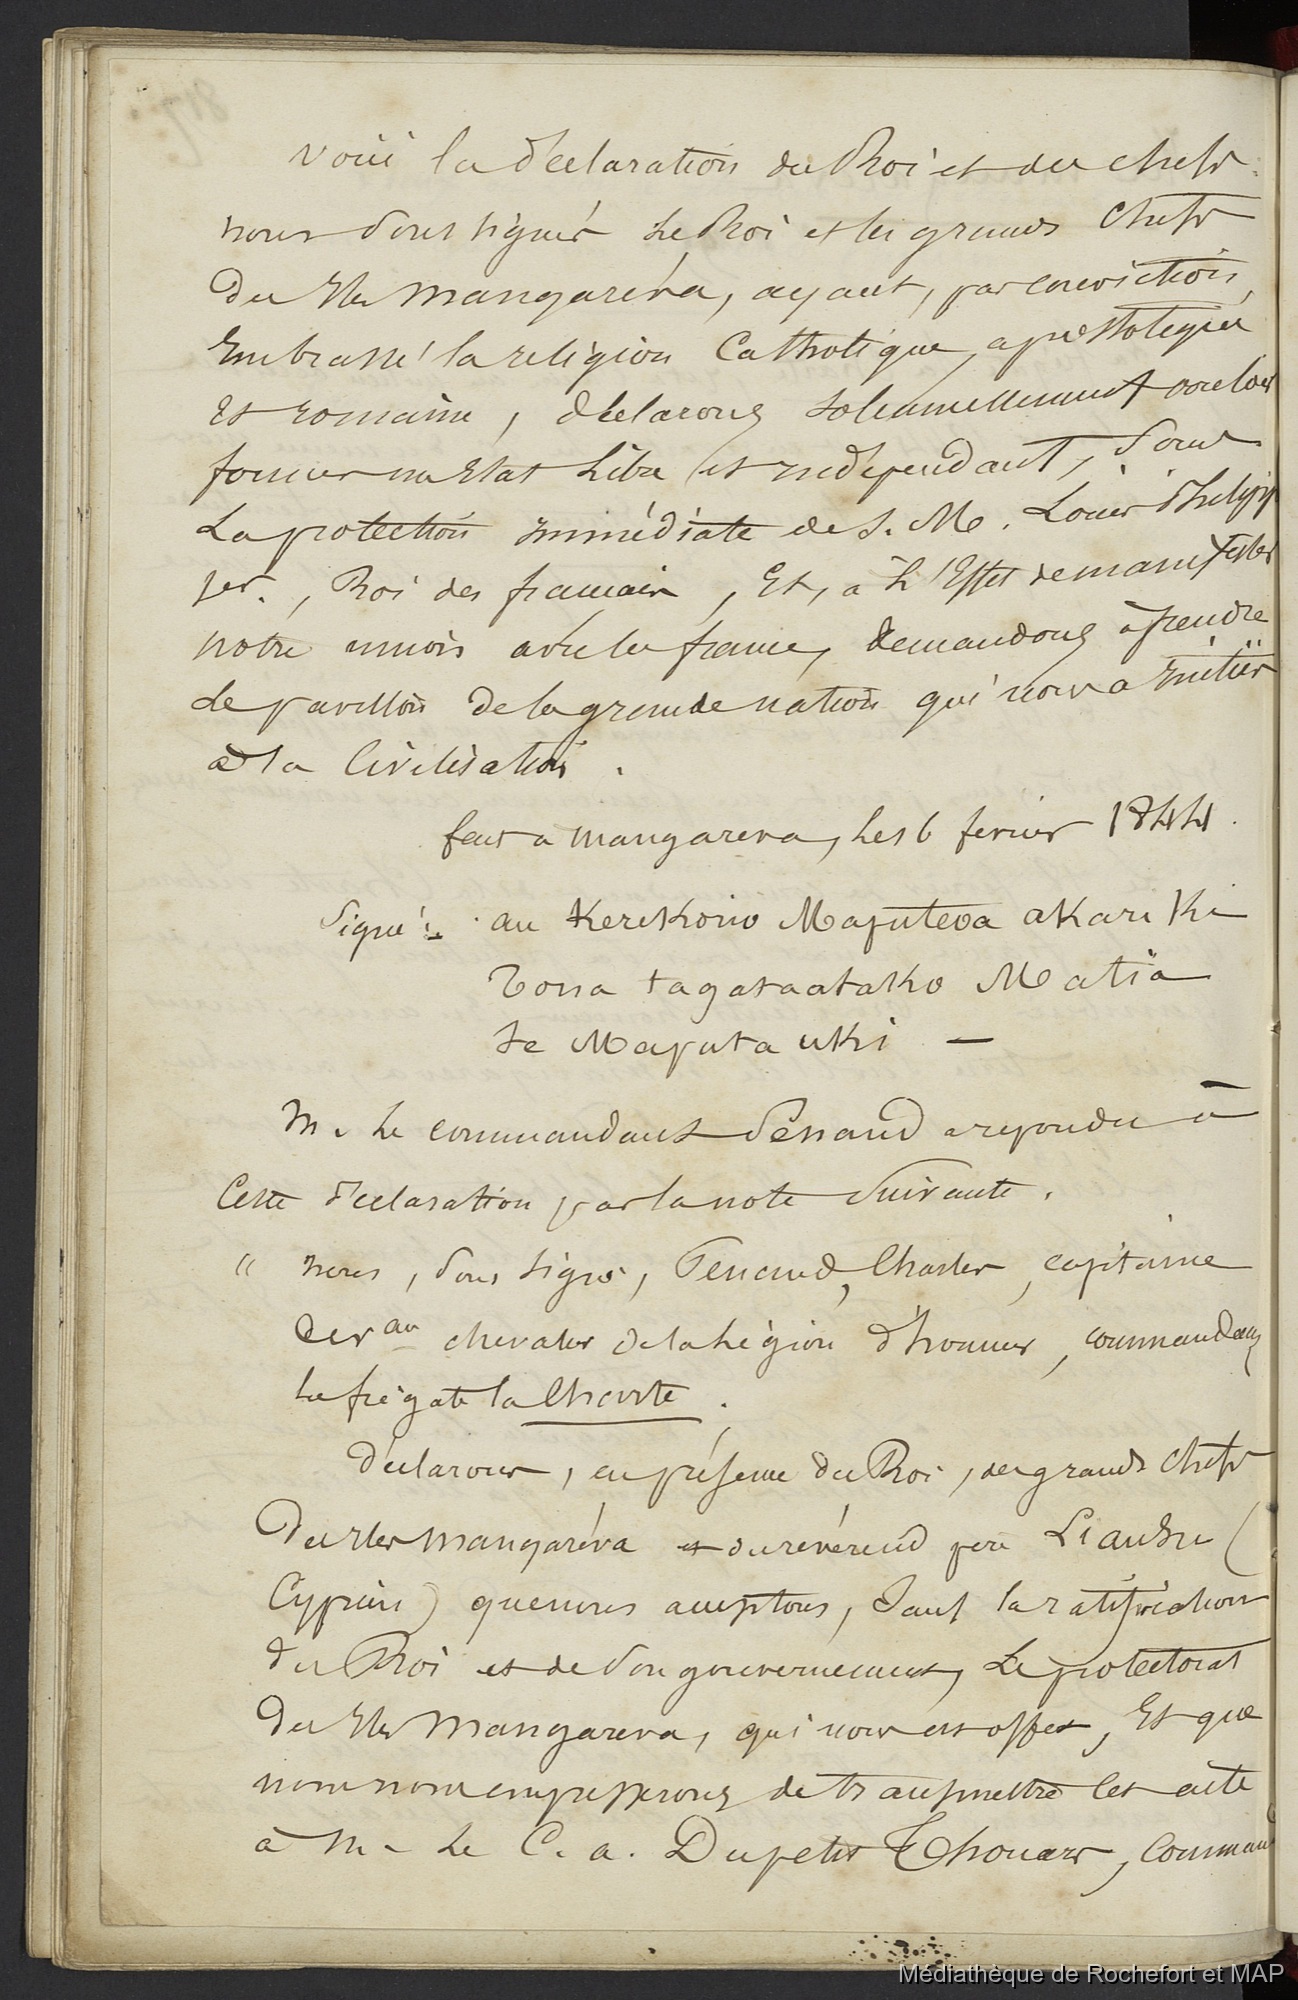 Voici la déclaration du Roi et des chefs :
nous soussignés Le Roi et les grands Chefs
des Iles Mangaréva, ayant, par conviction,
Embrassé la religion Catholique, apostolique
et romaine, déclarons solennellement vouloir
former un Etat Libre et indépendant, sous
La protection immédiate de S. M. Louis Philippe
1er., Roi des français, Et, à L'Effet de manifester
notre union avec la france, demandons à prendre
Le pavillon de la grande nation qui nous a initiés
à la Civilisation.
fait à mangareva, Le 16 fevrier 1844.
Signé :
Maputeoa akariki
Matia
Te Maputauki —
M. Le commandant Penaud a repondu à
Cette déclaration par la note Suivante.
" nous, soussigné, Penaud, Charles, capitaine
de vau chevalier de la Légion d'honneur, commandant
La frégate la Charte.
déclarons, en présence du Roi, des grands Chefs
des Iles Mangaréva et du révérend père Liausu (
Cyprien) que nous acceptons, Sauf la ratification
du Roi et de son gouvernement, Le protectorat
des Iles Mangareva, qui nous est offert, Et que
nous nous empresserons de transmettre cet acte
à M. Le C. a. Dupetit Thouars, Command
Médiathèque de Rochefort et MAP